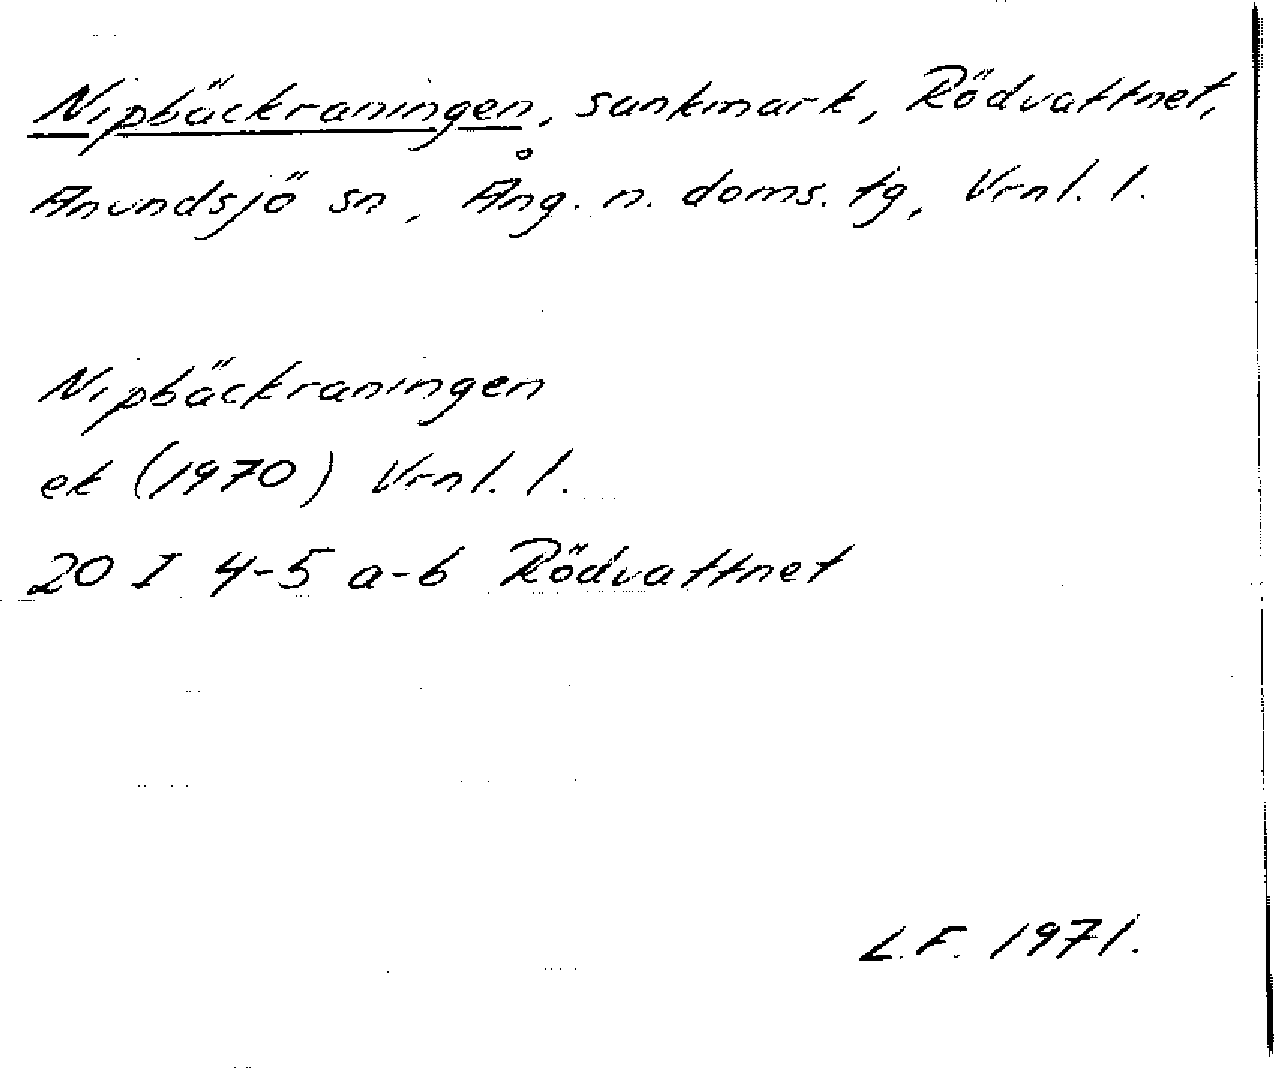 Nipbäckraningen, sankmark, Rödvattnet,
Anundsjö sn, Ång. n. doms. tg, Vrnl. l.
Nipbäckraningen
ek (1970) Vrnl. l.
20 I 4-5 a-b Rödvattnet
L.F. 1971.